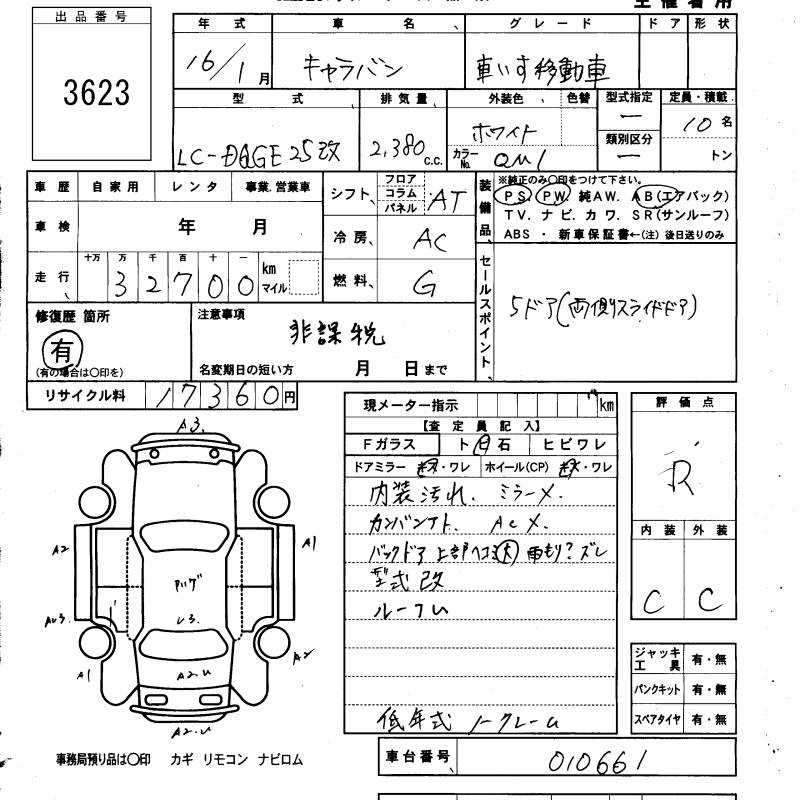 主催者用
出品番号
3623
年式 車名 グレード ドア 形状
16/1月 キャラバン 車いす移動車
型式 排気量 外装色 色替 型式指定 定員・積載
ー 10名
類別区分
LC-DQGE25改 2,380 c.c. ホワイト
カラーNo. QM1 ー トン
車歴 自家用 レンタ 事業、営業車
シフト フロア コラム パネル AT
装備品 ※純正のみ〇印をつけて下さい。
PS. PW. 純AW. AB(エアバック)
TV. ナビ. カワ. SR(サンルーフ)
ABS ・ 新車保証書←(注) 後日送りのみ
車検 年 月
冷房 AC
走行 十万 万 千 百 十 一
32700 km マイル
燃料 G
セールスポイント
5ドア(両側スライドドア)
修復歴 箇所
有
(有の場合は〇印を)
注意事項
非課税
名変期日の短い方 月 日まで
リサイクル料 17360円
現メーター指示 km
【査定員記入】
Fガラス ト ビ 石 ヒビワレ
ドアミラー キズ・ワレ ホイール(CP) キズ・ワレ
内装汚れ. ミラーメ.
カンバンアト. ACX.
バックドア 上部ヘコミ大 雨もり? ズレ
型式改
ルーフU
低年式 ノークレーム
評価点
R
内装 外装
C C
ジャッキ工具 有・無
パンクキット 有・無
スペアタイヤ 有・無
A3.
A2
A1
AU3.
U3.
A2
A1
A2.U
A2.U
事務局預り品は〇印 カギ リモコン ナビロム
車台番号 010661